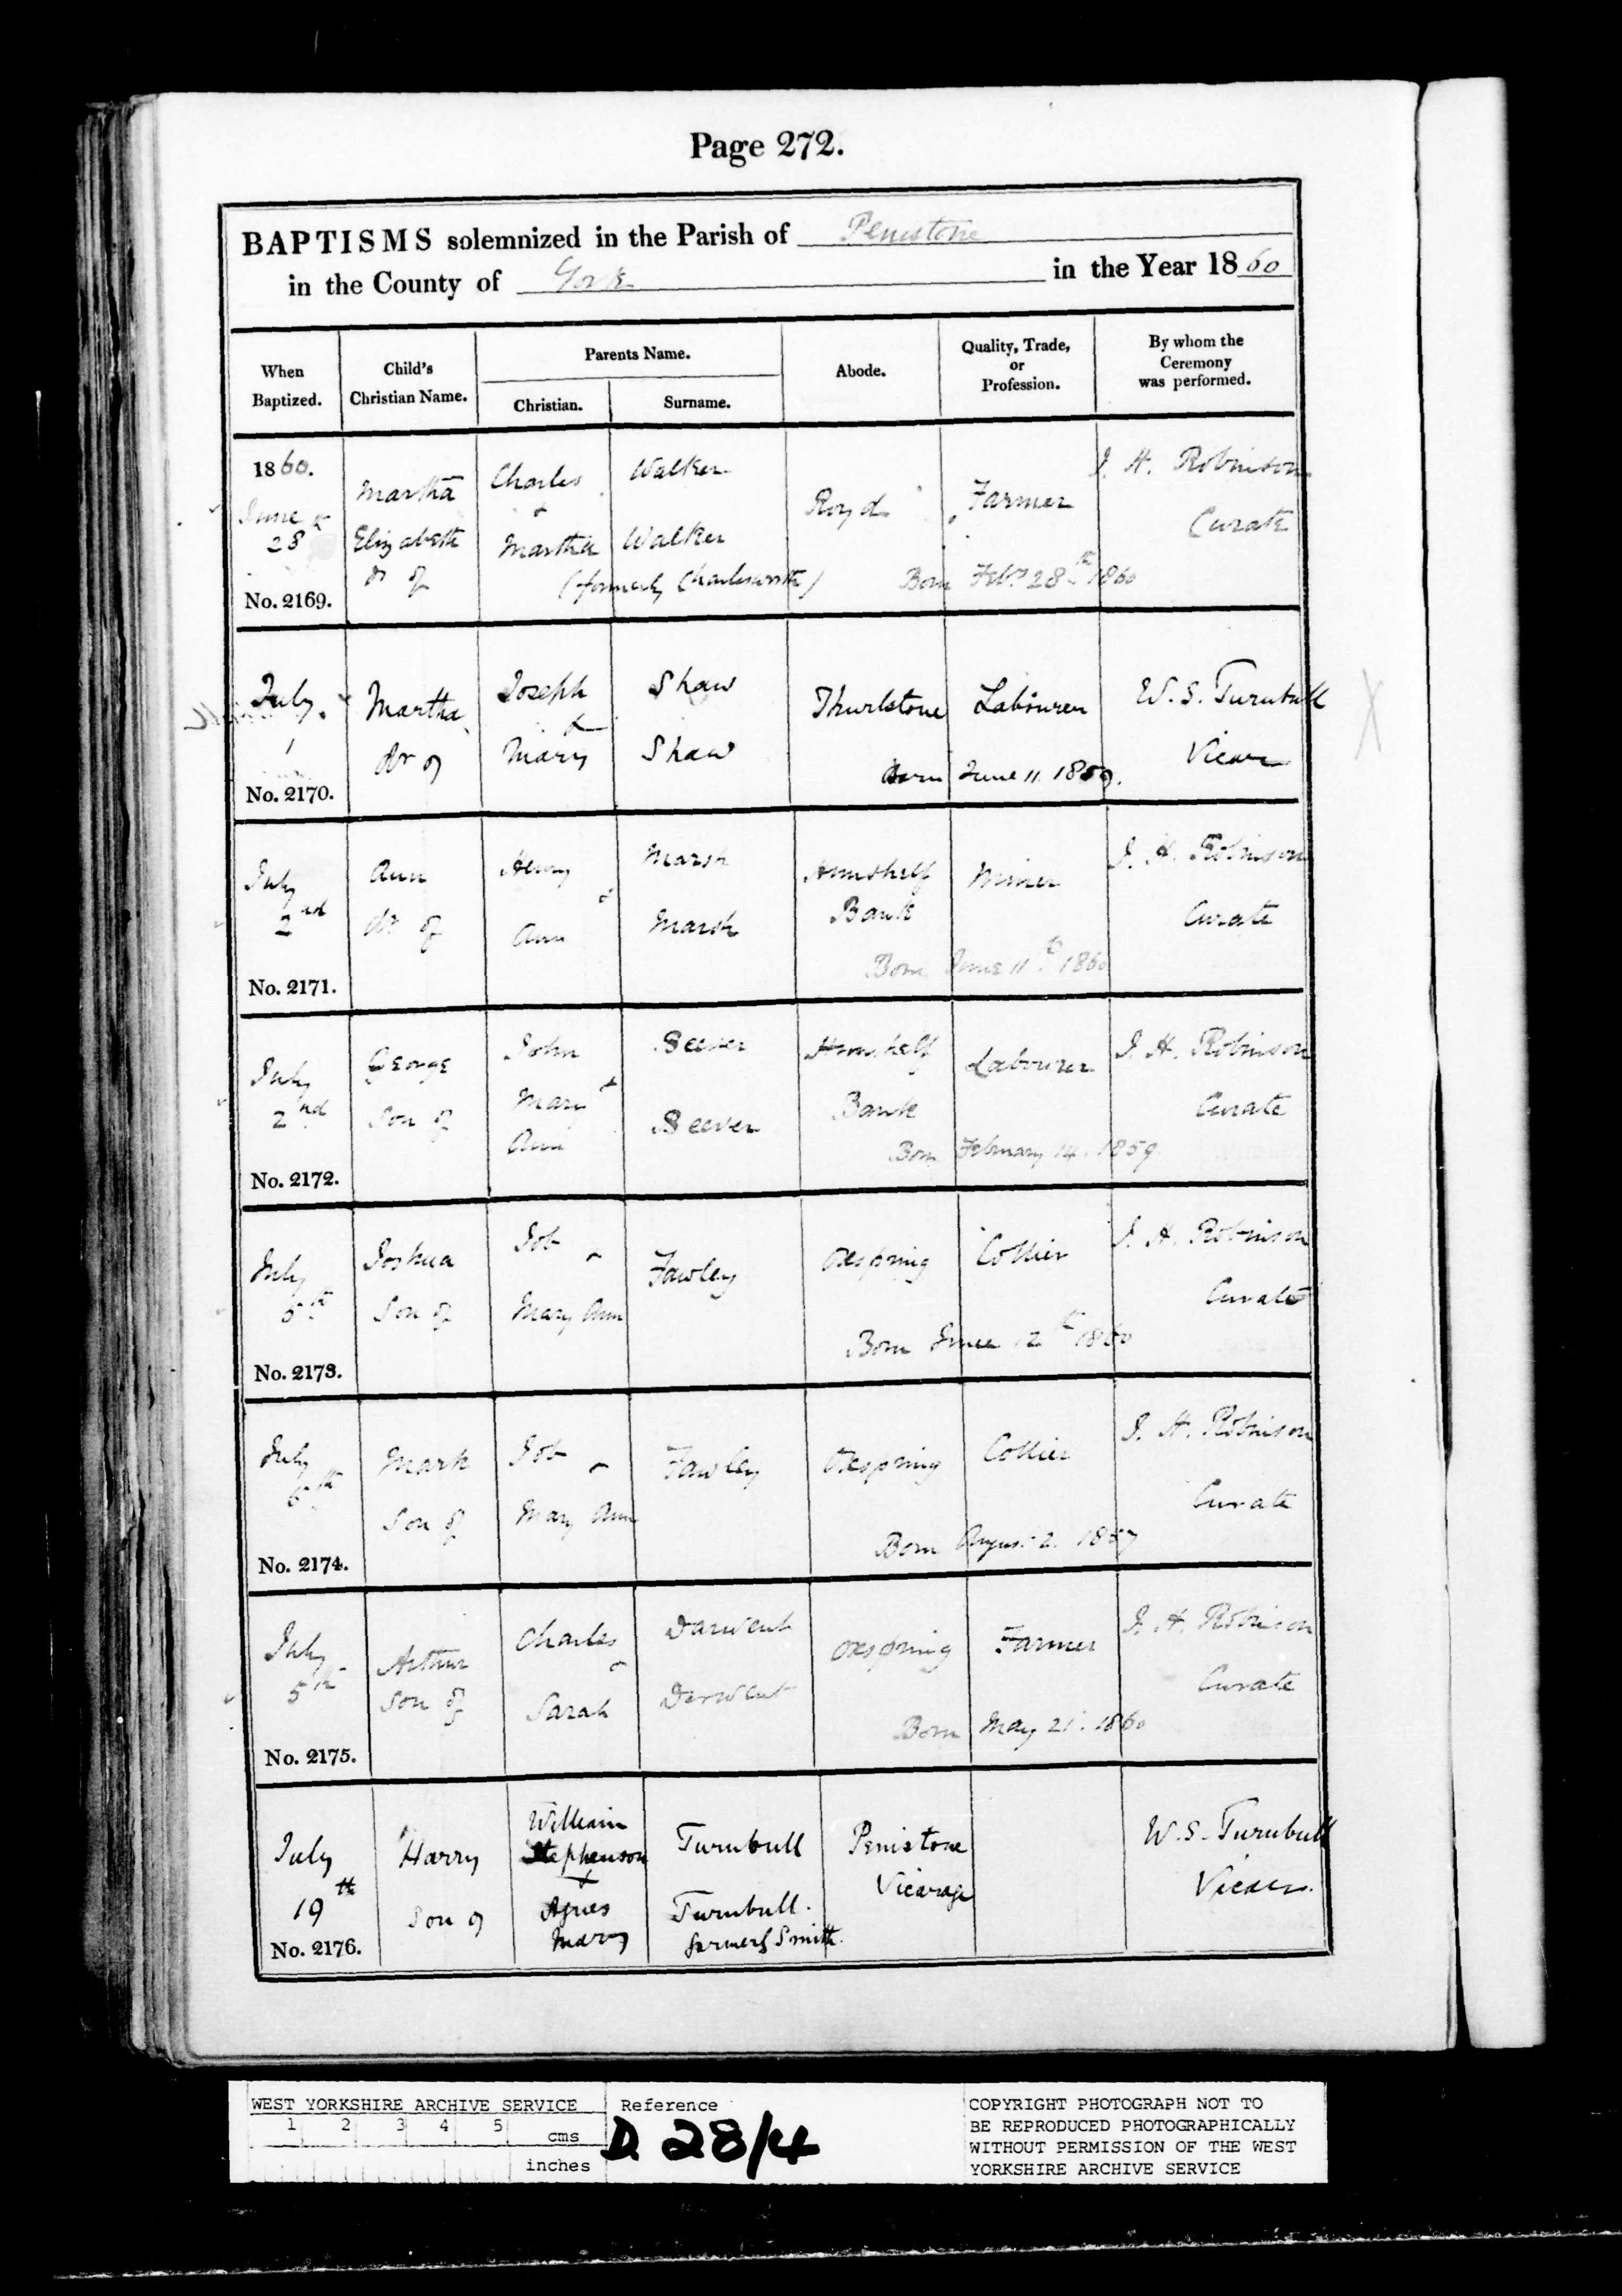 Page 272.
BAPTISMS solemnized in the Parish of Penistone
in the County of York in the Year 1860
When Baptized.
Child's Christian Name.
Parents Name.
Christian.
Surname.
Abode.
Quality, Trade, or Profession.
By whom the Ceremony was performed.
1860.
June 28
No. 2169.
Martha Elizabeth dr of
Charles & Martha
Walker
Walker
(formerly Charlesworth)
Royd
Farmer
Born Feby 28th 1860
J. H. Robinson
Curate
July 1
No. 2170.
Martha
dr of
Joseph & Mary
Shaw
Shaw
Thurlstone
Labourer
Born June 11 1859.
W. S. Turnbull
Vicar
July 2nd
No. 2171.
Ann
dr of
Henry & Ann
Marsh
Marsh
Hunshelf Bank
Miner
Born June 11th 1860
J. H. Robinson
Curate
July 2nd
No. 2172.
George
Son of
John & Mary Ann
Seever
Seever
Hunshelf Bank
Labourer
Born February 14. 1859
J. H. Robinson
Curate
July 5th
No. 2173.
Joshua
Son of
Job
Mary Ann
Fawley
Oxspring
Collier
Born June 12th 1860
J. H. Robinson
Curate
July
No. 2174.
Mark
Son of
Job
Mary Ann
Fawley
Oxspring
Collier
Born August 2. 1857
J. H. Robinson
Curate
July 5th
No. 2175.
Arthur
Son of
Charles
Sarah
Darwent
Derwent
Oxspring
Farmer
Born May 21. 1860
J. H. Robinson
Curate
July 19th
No. 2176.
Harry
Son of
William Stephenson & Agnes Mary
Turnbull
Turnbull.
formerly Smith.
Penistone Vicarage
W. S. Turnbull
Vicar.
WEST YORKSHIRE ARCHIVE SERVICE
1 2 3 4 5 cms
inches
Reference
D 28/4
COPYRIGHT PHOTOGRAPH NOT TO
BE REPRODUCED PHOTOGRAPHICALLY
WITHOUT PERMISSION OF THE WEST
YORKSHIRE ARCHIVE SERVICE